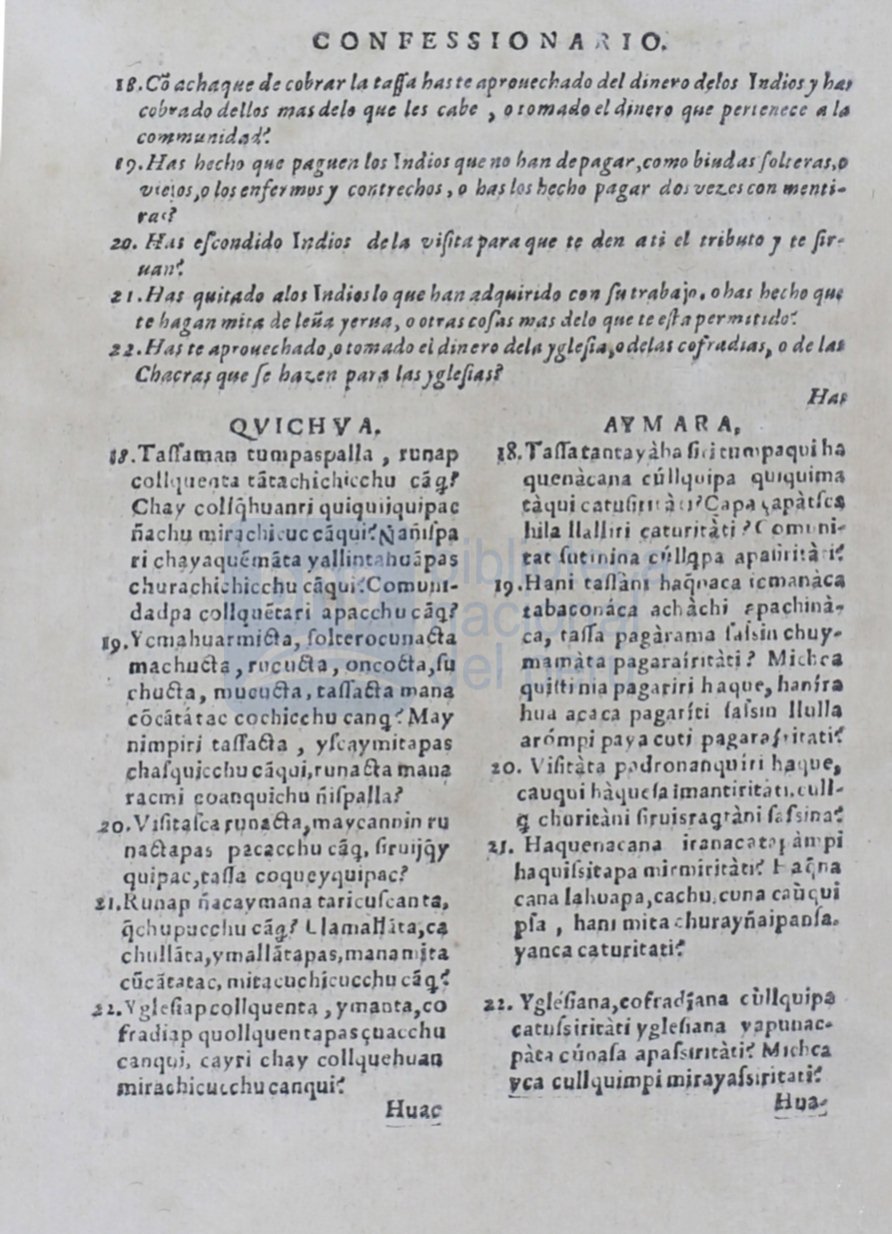 CONFESSIONARIO.
18.Cõ achaque de cobrar la taſſa haste aprouechado del dinero delos Indios y has
cobrado dellos mas delo que les cabe , o tomado el dinero que pertenece a la
communidad?
19.Has hecho que paguen los Indios que no han de pagar,como biudas ſolteras,o
viejos,o los enfermos y contrechos , o has los hecho pagar dos vezes con menti-
ras?
20. Has eſcondido Indios dela viſita para que te den ati el tributo y te ſir-
uan?
21.Has quitado alos Indios lo que han adquirido con ſu trabajo, o has hecho que
te hagan mita de leña yerua, o otras coſas mas delo que te eſta permitido?
22.Has te aprouechado,o tomado el dinero dela ygleſia,o delas cofradias, o de las
Chacras que ſe hazen para las ygleſias?
Has
QVICHVA.
18.Taſſaman tumpaspalla , runap
collquenta tãtachichicchu cãq̃?
Chay collq̃huanri quiquijquipac
ñachu mirachicuc cãqui? Ñañiſpa
ri chayaquẽmãta yallintahuãpas
churachichicchu cãqui?Comuni-
dadpa collquẽtari apacchu cãq̃?
19.Ycmahuarmicta, ſolterocunacta
machucta , rucucta , oncocta,ſu
chucta , mucucta , taſſacta mana
cõcãtátac cochicchu canq̃? May
nimpiri taſſacta , yſcaymitapas
chaſquicchu cãqui,runacta mana
racmi coanquichu ñiſpalla?
20.Viſitaſca runacta,maycannin ru
nactapas pacacchu cãq̃, ſiruijq̃y
quipac,taſſa coqueyquipac?
21.Runap ñacaymana taricuſcanta,
q̃chupucchu cãq̃? Llamallãta,ca
chullãta,ymallãtapas,mana mita
cũcãtatac, mitacuchicucchu cãq̃?
22.Ygleſiap collquenta , ymanta,co
fradiap quollquentapas çuacchu
canqui, cayri chay collquehuan
mirachicucchu canqui?
Huac
AYMARA,
18.Taſſa tantayàha tumpaqui ha
quenàcana cúllquipa quiquima
tàqui Çapa
hila llalliri caturitàti? Comuni-
tat cúllq̃pa
19.Hani taſſàni haq̃naca icmanàca
tabaconáca achàchi apachinà-
ca, taſſa pagàrama ſaſsin chuy-
mamàta pagarairitàti? Michca
quiſti nia pagariri haque, hanira
hua acaca pagariti ſaſsin llulla
arómpi paya cuti
20. Viſitàta padronanquiri haque,
cauqui hàqueſa imantiritàti, cull-
q̃ churitàni ſiruisragtàni ſaſsina?
21. Haquenacana
haquiſsitapa mirmiritàti? Haq̃na
cana lahuapa,cachu,cuna caùqui
pſa , hani mita churayñaipanſa.
yanca caturitati?
22. Ygléſiana,cofradjana cùllquipa
catuſsiritàti ygleſiana yapunac-
pàta cúnaſa apaſsiritàti? Michca
yca cullquimpi mirayaſsiritati?
Hua-